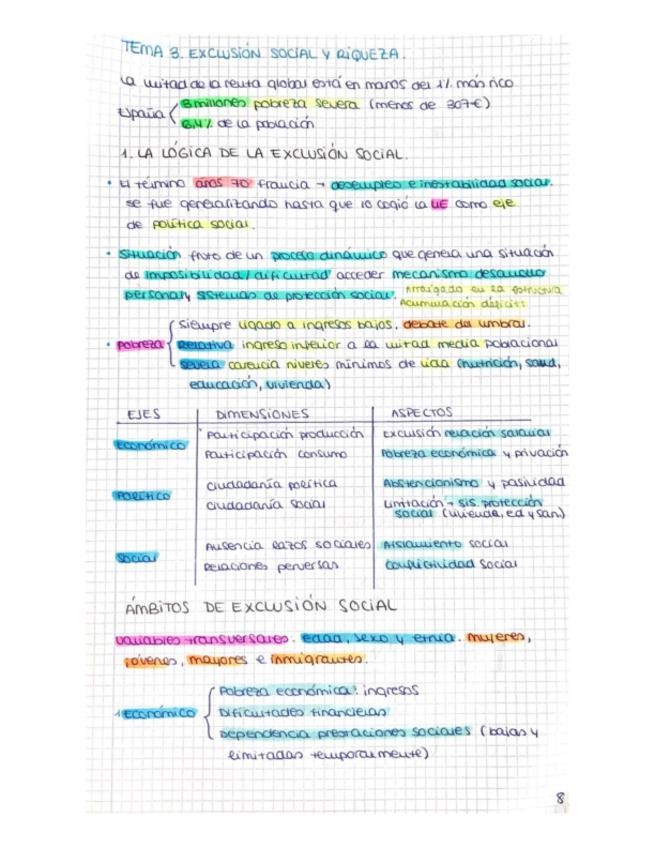 TEMA 3. EXCLUSIÓN SOCIAL Y RIQUEZA.
La mitad de la renta global está en manos del 1% más rico
España 8 millones pobreza severa (menos de 307€)
6,4% de la población
1. LA LÓGICA DE LA EXCLUSIÓN SOCIAL.
• El término años 70 Francia → desempleo e inestabilidad social.
se fue generalizando hasta que lo cogió la UE como eje
de política social.
• Situación fruto de un proceso dinámico que genera una situación
de imposibilidad / dificultad acceder mecanismo desarrollo
personal y sistemas de protección social. Arraigado en la estructura
Acumulación déficits
siempre ligado a ingresos bajos, debate del umbral.
• Pobreza Relativa ingreso inferior a la mitad media poblacional
severa carencia niveles mínimos de vida (nutrición, salud,
educación, vivienda)
EJES DIMENSIONES ASPECTOS
Económico Participación producción Exclusión relación salarial
Participación consumo Pobreza económica y privación
Político ciudadanía política Abstencionismo y pasividad
ciudadanía social limitación → sis. protección
social (vivienda, ed y san)
Social Ausencia lazos sociales Aislamiento social
Relaciones perversas Conflictividad social
ÁMBITOS DE EXCLUSIÓN SOCIAL
variables transversales. edad, sexo y etnia. mujeres,
jóvenes, mayores e inmigrantes.
Pobreza económica: ingresos
1 Económico Dificultades financieras
Dependencia prestaciones sociales (bajas y
limitadas temporalmente)
8